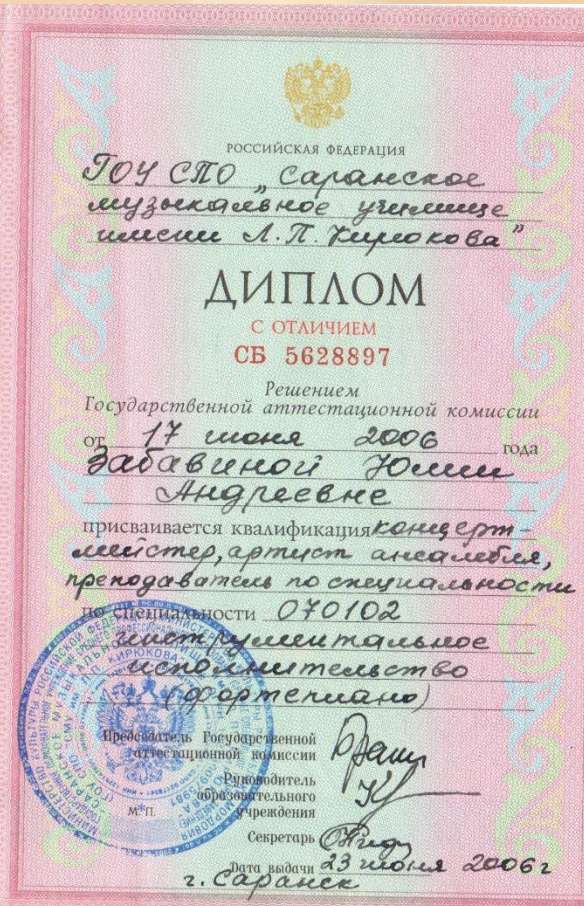 РОССИЙСКАЯ ФЕДЕРАЦИЯ
ГОУ СПО „Саранское
музыкальное училище
имени Л.П. Кирюкова"
ДИПЛОМ
С ОТЛИЧИЕМ
СБ 5628897
Решением
Государственной аттестационной комиссии
от 17 июня 2006 года
Забавиной Юлии
Андреевне
присваивается квалификация концерт-
мейстер, артист ансамбля,
преподаватель по специальности
по специальности 070102
инструментальное
исполнительство
(фортепиано)
Председатель Государственной
аттестационной комиссии
Руководитель
образовательного
учреждения
М.П.
Секретарь
Дата выдачи 23 июня 2006 г
г. Саранск